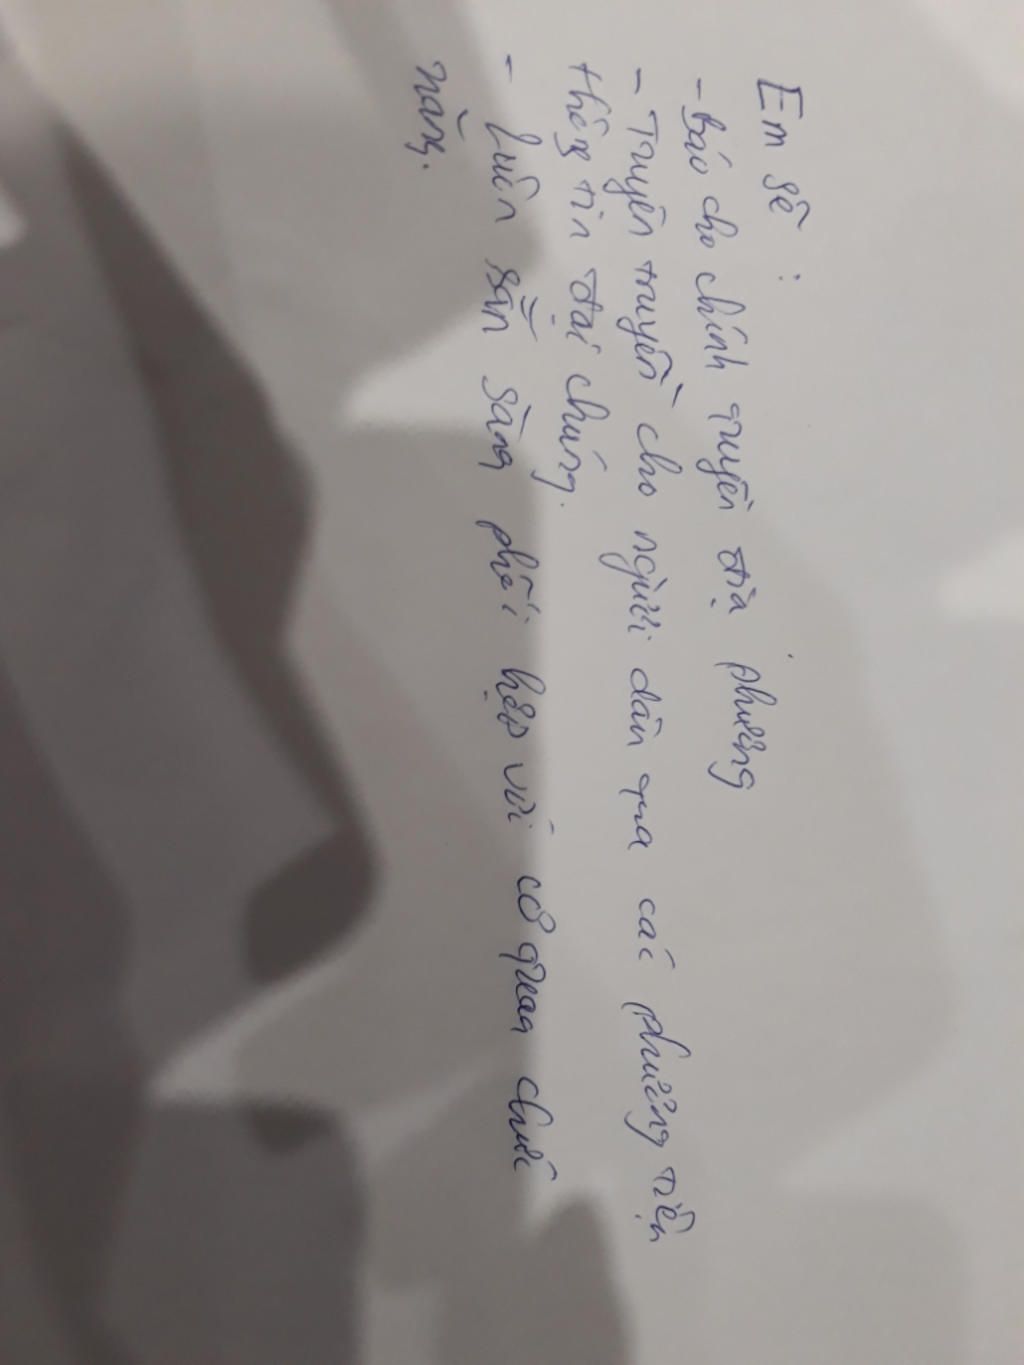 Em sẽ :
- báo cho chính quyền địa phương
- Tuyên truyền cho người dân qua các phương tiện
thông tin đại chúng.
- Luôn sẵn sàng phối hợp với cơ quan chức
năng.